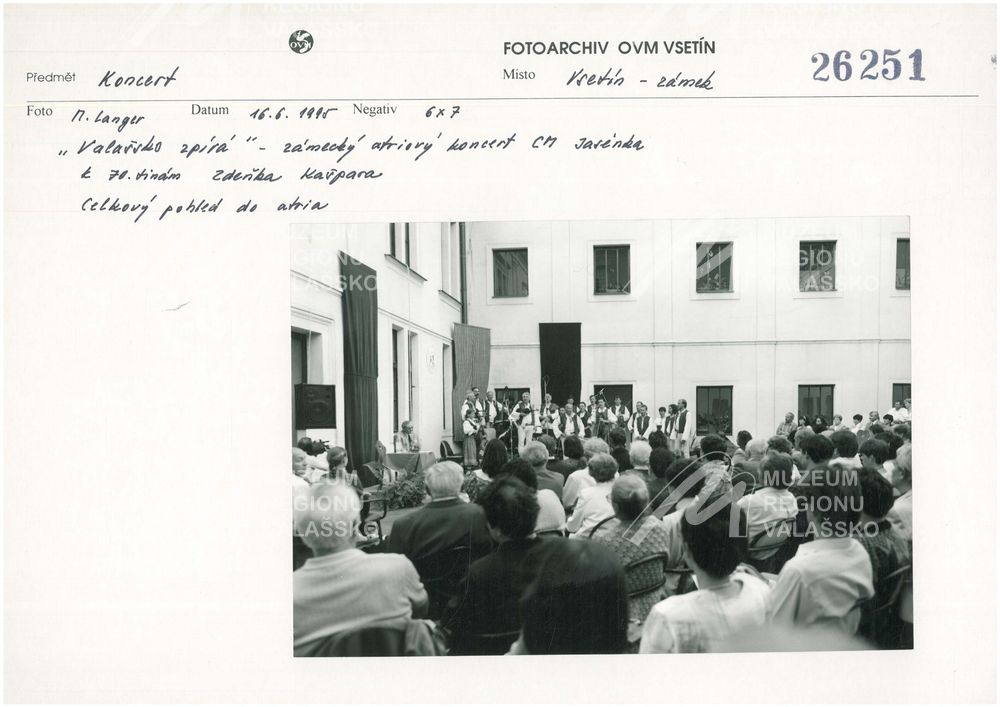 OVM
FOTOARCHIV OVM VSETÍN
26251
Předmět Koncert
Místo Vsetín - zámek
Foto M. Langer Datum 16.6.1995 Negativ 6x7
„Valašsko zpívá" - zámecký atriový koncert CM Jasénka
k 70.tinám Zdeňka Kašpara
Celkový pohled do atria
MUZEUM
REGIONU
VALAŠSKO